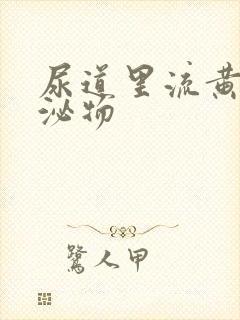 尿道里流黄
泌物
鹭人甲